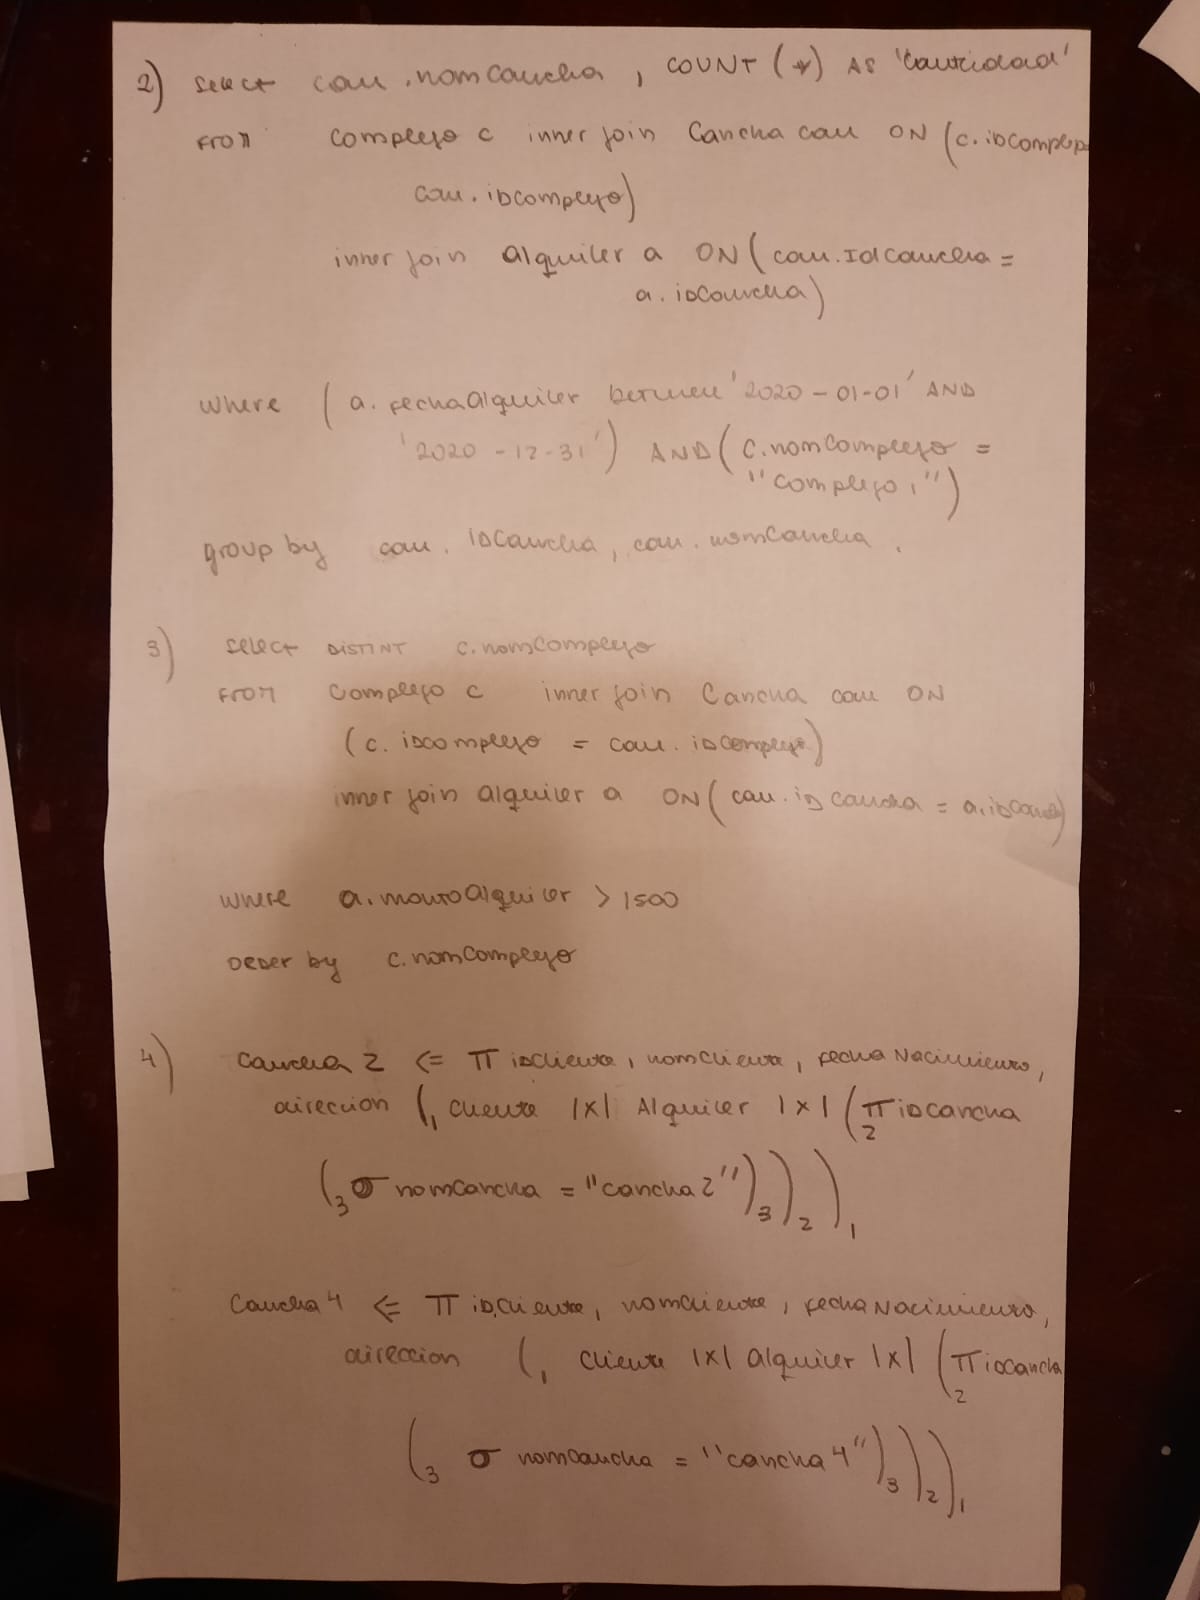 2) select can.nomCancha, COUNT(*) AS 'cantidad'
FROM complejo c inner join Cancha can ON (c.idcomplejo
can.idcomplejo)
inner join alquiler a ON(can.Idcancha =
a.idCancha)
where (a.fechaAlquiler between '2020-01-01' AND
'2020-12-31') AND (c.nomComplejo =
"complejo 1")
group by can.idCancha, can.nomCancha.
3) select DISTINT c.nomComplejo
FROM Complejo c inner join Cancha can ON
(c.idcomplejo = can.idcomplejo)
inner join alquiler a ON(can.id cancha = a.idcanc)
where a.montoAlquiler > 1500
order by c.nomComplejo
4) Cancha 2 <= π idcliente, nomcliente, fechaNacimiento,
direccion (1 cliente |x| Alquiler |x| (2 π idcancha
(3 σ nomCancha = "cancha 2")3)2)1
Cancha 4 <= π id,cliente, nomcliente, fechaNacimiento,
direccion (1 cliente |x| alquiler |x| (2 π idcancha
(3 σ nomcancha = "cancha 4")3)2)1